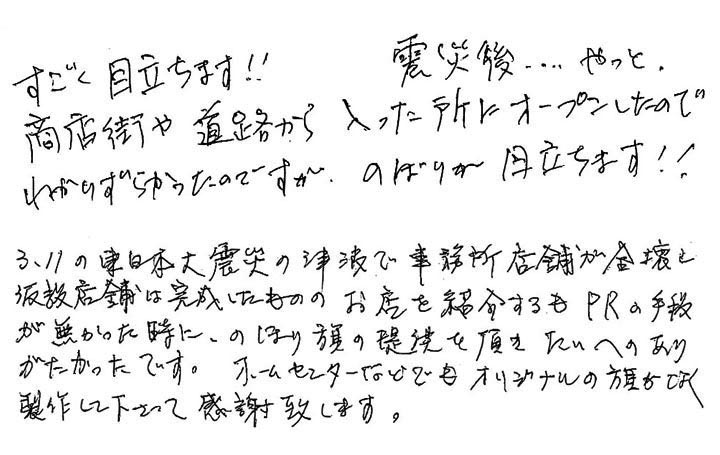 すごく目立ちます!!
震災後‥‥やっと、
商店街や道路から入った所にオープンしたので
わかりずらかったのですが、のぼりが目立ちます!!
3、11の東日本大震災の津波で事務所店舗が全壊し
仮設店舗は完成したもののお店を紹介するもPRの手段
が無かった時に、のぼり旗の提供を頂き たいへのあり
がたかったです。ホームセンターなどでもオリジナルの旗がなく
製作して下さって感謝致します。